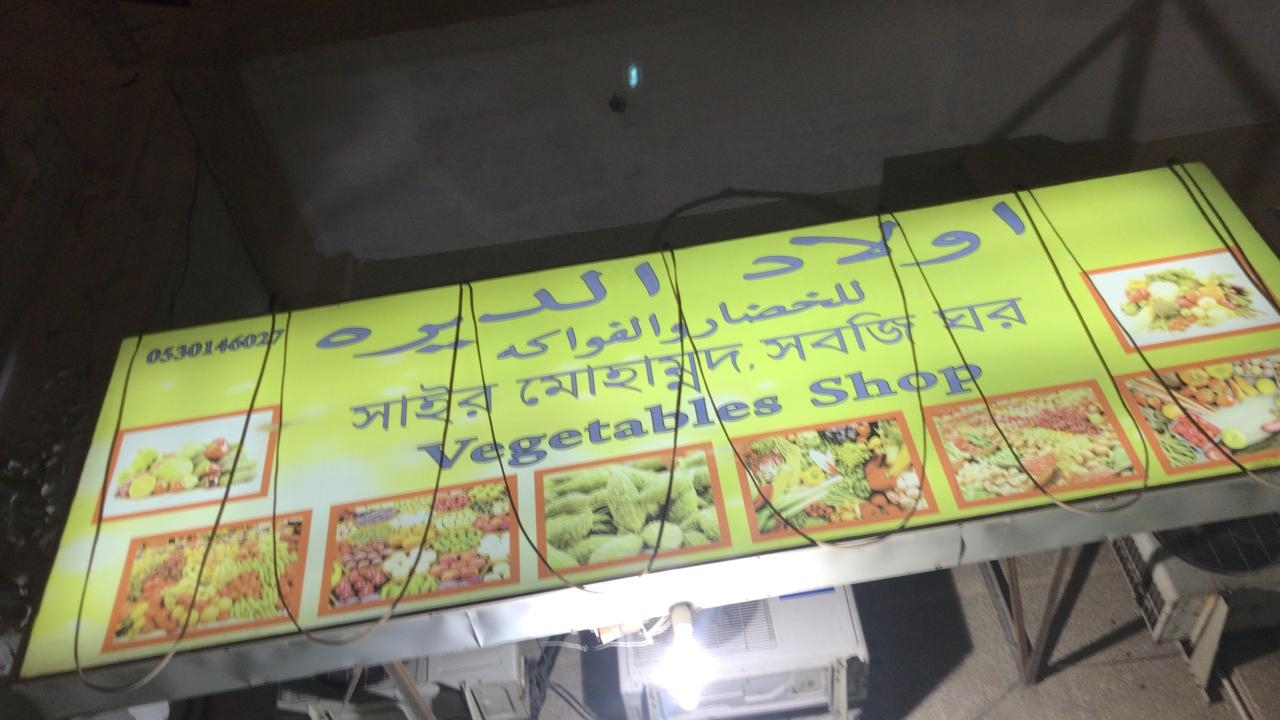 اولاد الديره
0530146027
للخضار والفواكه
সাইর মোহাম্মদ, সবজি ঘর
Vegetables Shop